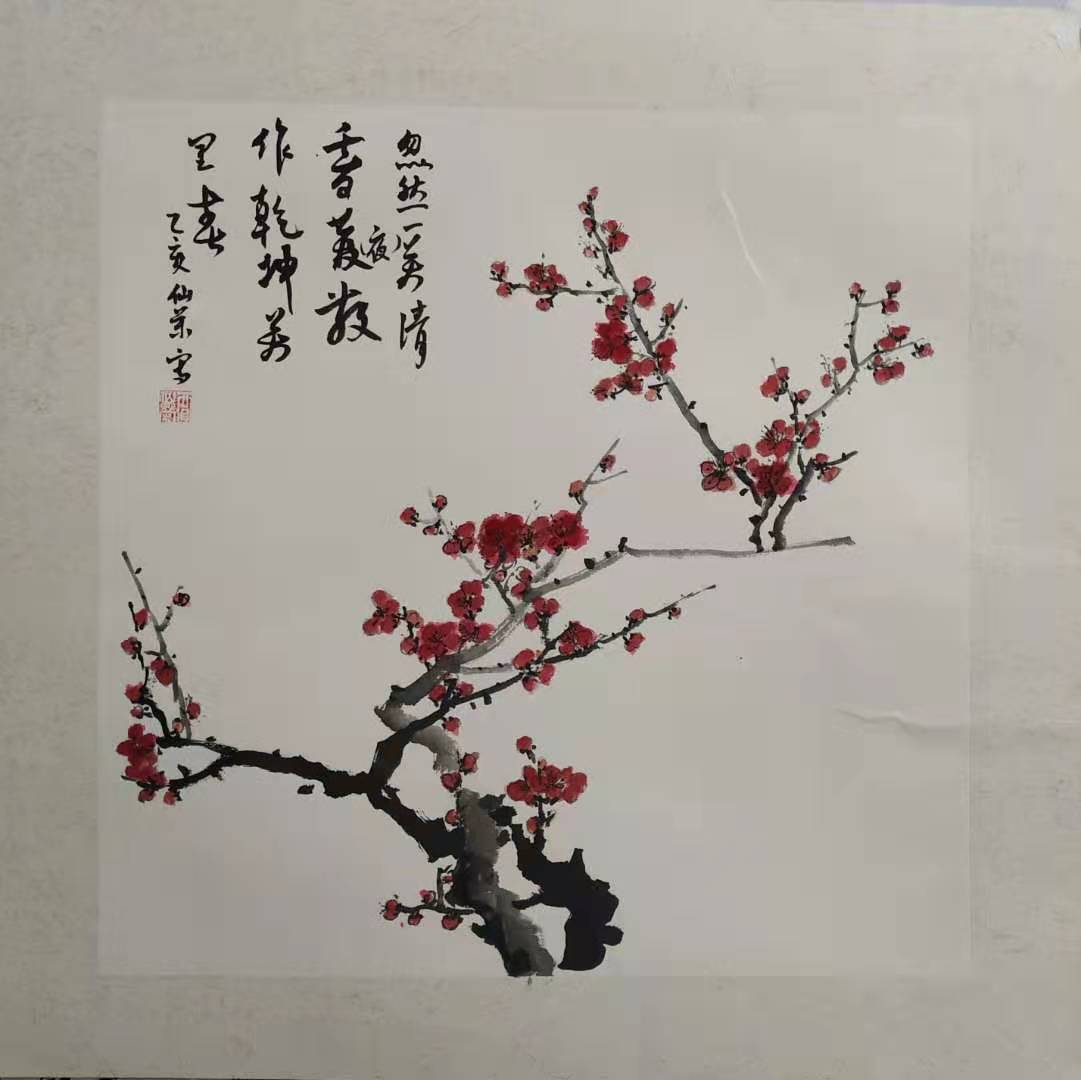 忽然一夜清
香發散
作乾坤萬
里春
乙亥仙写